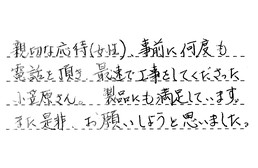 親切な応待(女性)、事前に何度も
電話を頂き、最速で工事をしてくださった
小笠原さん。製品にも満足しています。
また是非、お願いしようと思いました。